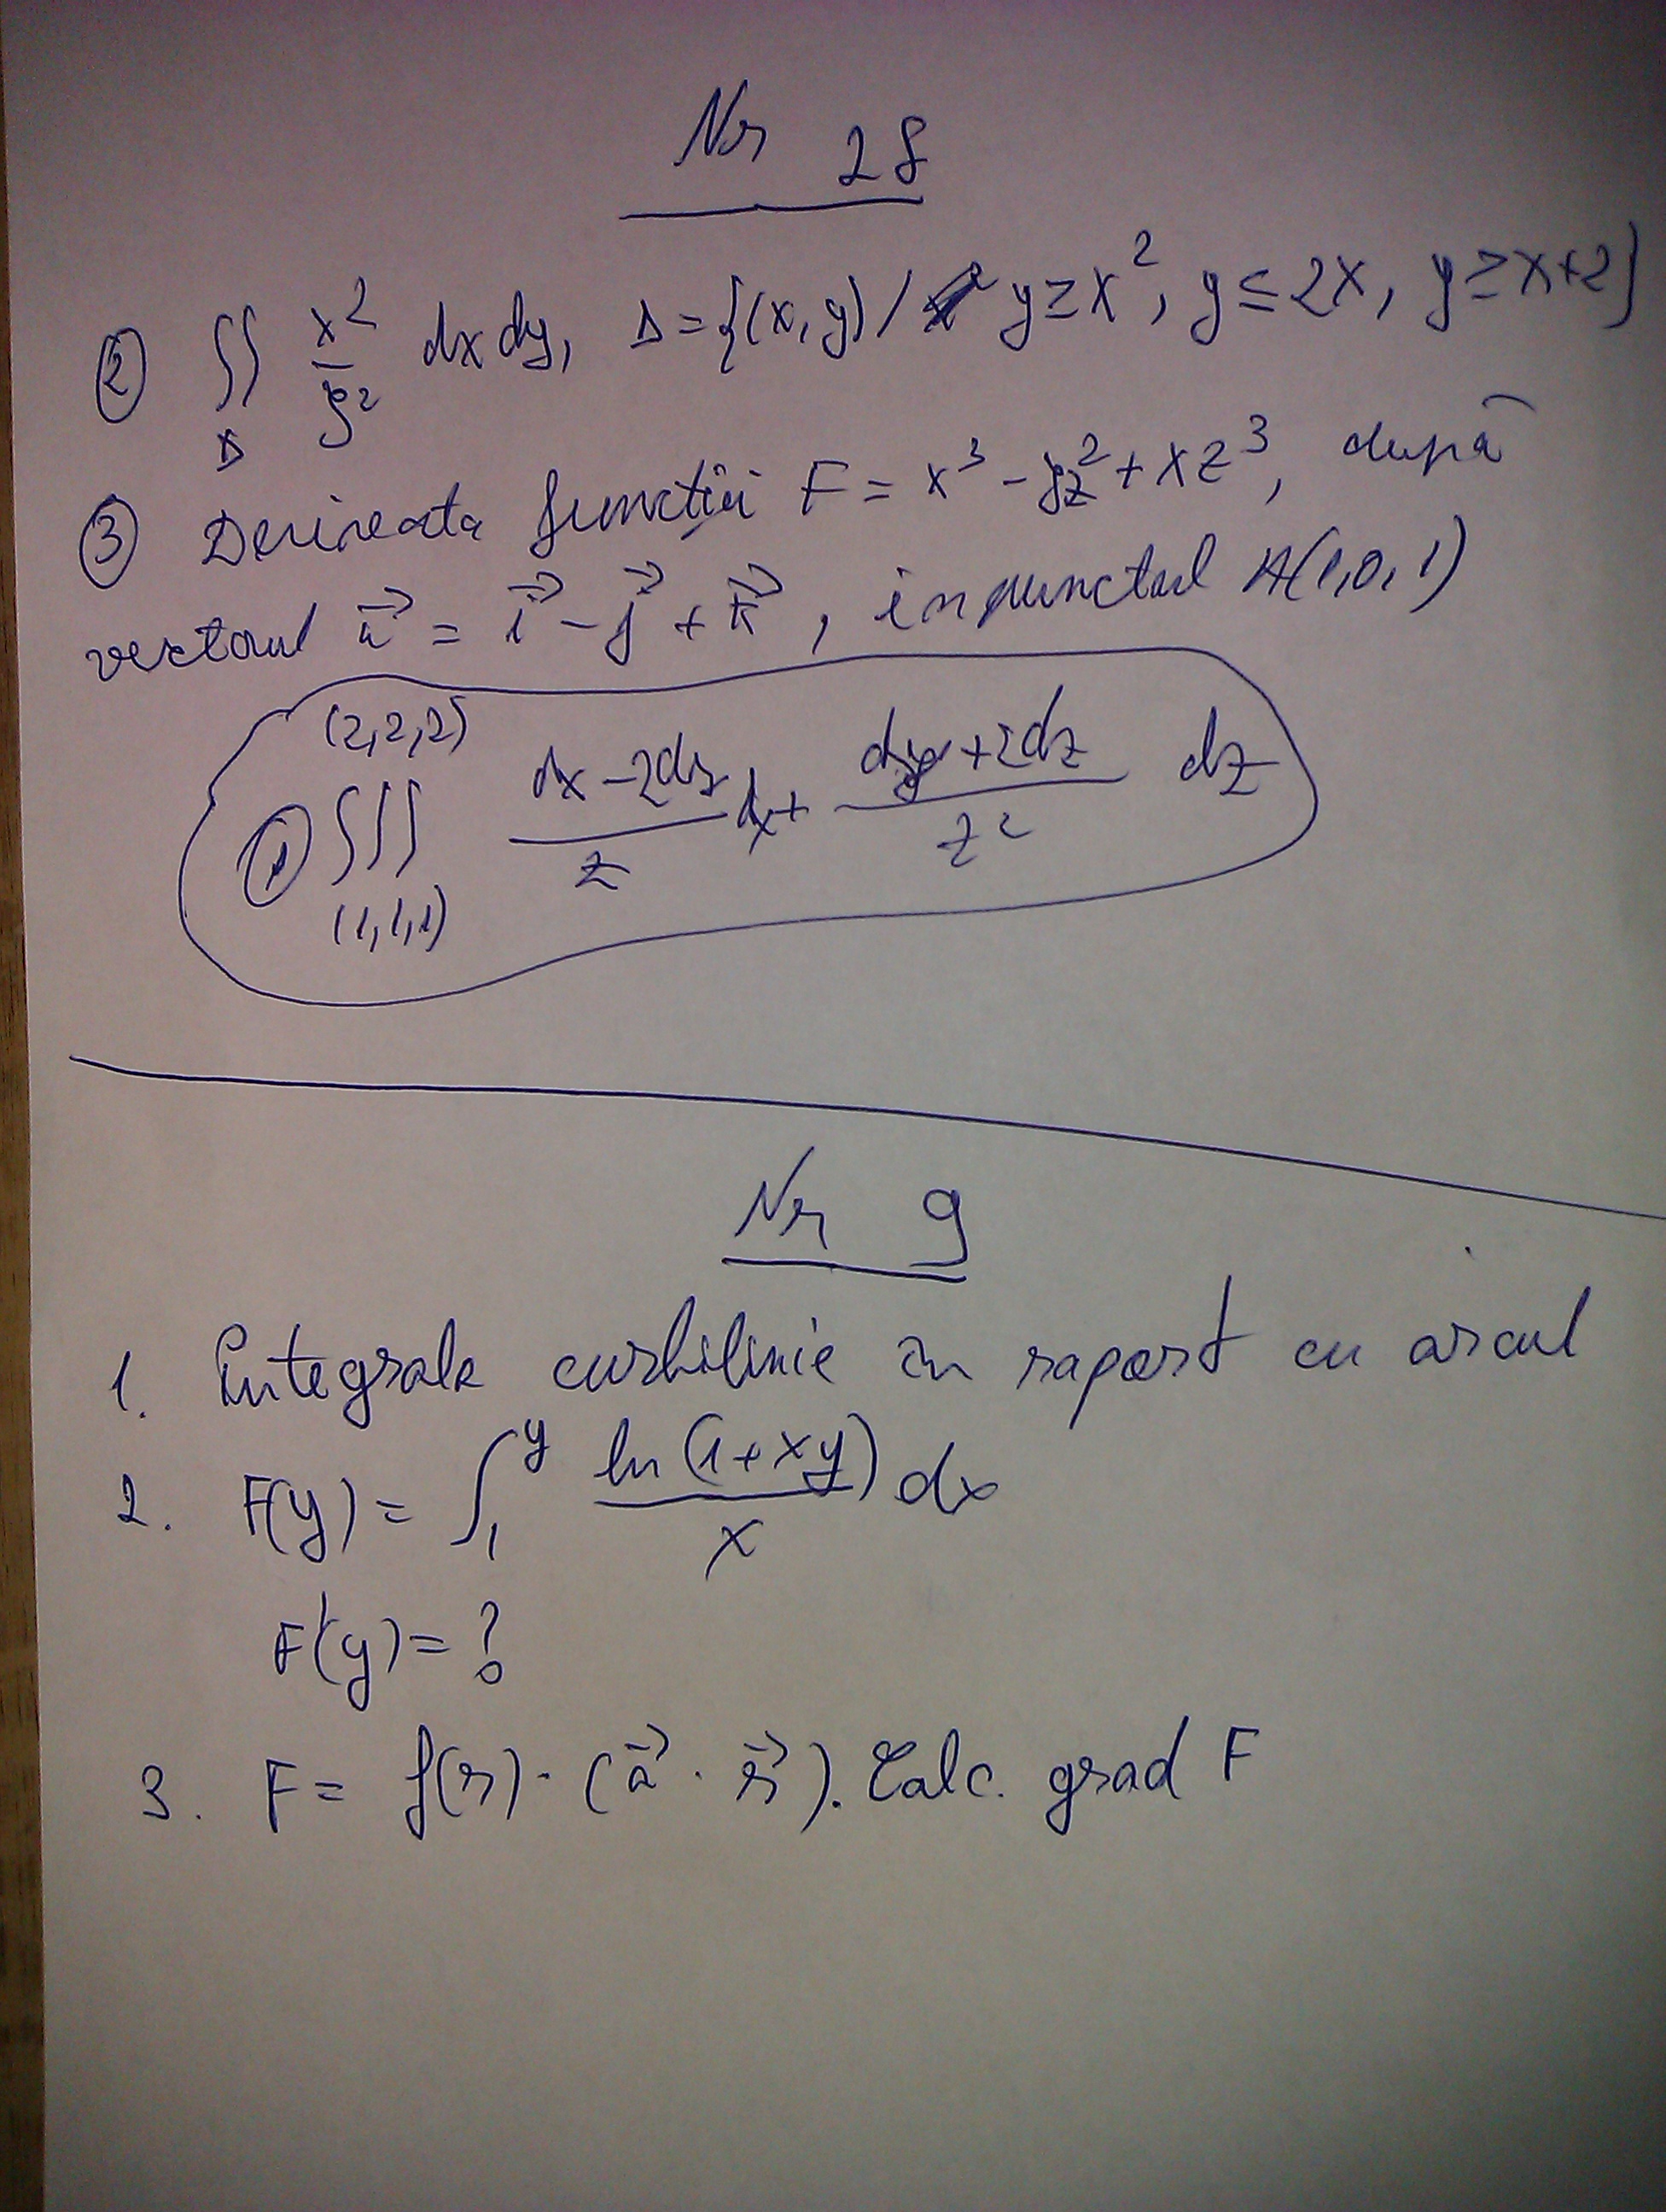 Nr 28
② ∬_D x²/y² dx dy, D = {(x, y) / y ≥ x², y ≤ 2x, y ≥ x+2}
③ Derivata funcției F = x³ - yz² + xz³, după
vectorul u⃗ = i⃗ - j⃗ + k⃗, in punctul A(1,0,1)
① ∭_(1,1,1)^(2,2,2) (dx - 2dy)/z dx + (dy + 2dz)/z² dz
Nr 9
1. Integrale curbilinie în raport cu arcul
2. F(y) = ∫₁^y ln(1+xy)/x dx
F'(y) = ?
3. F = f(r) · (a⃗ · r⃗). Calc. grad F